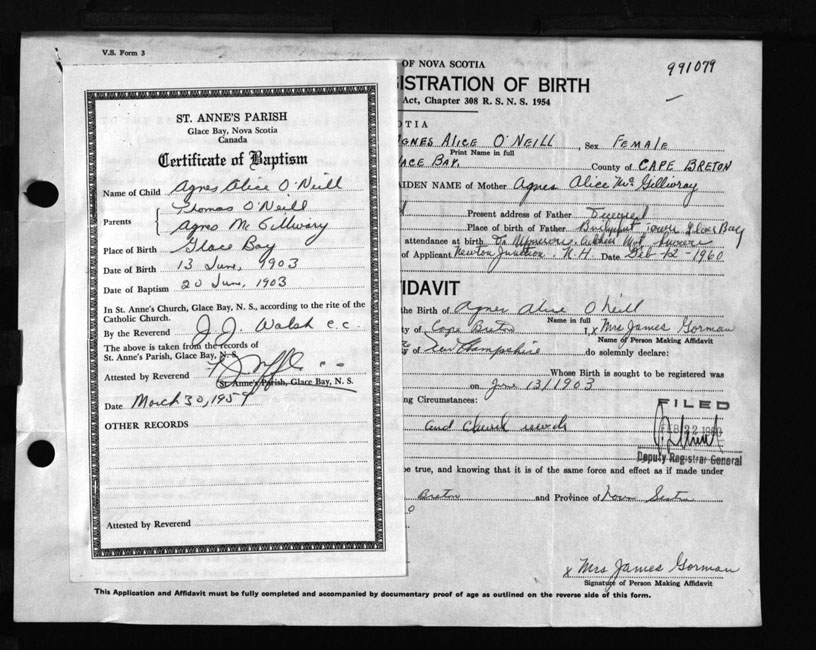 V.S. Form 3
ST. ANNE'S PARISH
Glace Bay, Nova Scotia
Canada
Certificate of Baptism
Name of Child Agnes Alice O'Neill
Thomas O'Neill
Parents
Agnes Mc Gillivary
Place of Birth Glace Bay
Date of Birth 13 June, 1903
Date of Baptism 20 June, 1903
In St. Anne's Church, Glace Bay, N. S., according to the rite of the
Catholic Church.
By the Reverend J. J. Walsh c.c.
The above is taken from the records of
St. Anne's Parish, Glace Bay, N. S.
Attested by Reverend
St. Anne's Parish, Glace Bay, N. S.
Date March 30, 1959
OTHER RECORDS
Attested by Reverend
OF NOVA SCOTIA
991079
ISTRATION OF BIRTH
Act, Chapter 308 R. S. N. S. 1954
OTIA
GNES ALICE O'NEILL, Sex FEMALE
Print Name in full
LACE BAY. County of CAPE BRETON
AIDEN NAME of Mother Agnes Alice Mc Gillivray
Present address of Father
Place of birth of Father Bridgeport Town Glace Bay
attendance at birth
of Applicant Newton Junction. N.H. Date Feb 12-1960
FIDAVIT
the Birth of Agnes Alice O'Neill
Name in full
ty of Cape Breton I, x Mrs James Gorman
Name of Person Making Affidavit
y of New Hampshire do solemnly declare:
Whose Birth is sought to be registered was
on June 13/1903
ng Circumstances:
FILED
and church records
FEB 22 1960
Deputy Registrar General
be true, and knowing that it is of the same force and effect as if made under
Breton and Province of Nova Scotia
x Mrs James Gorman
Signature of Person Making Affidavit
This Application and Affidavit must be fully completed and accompanied by documentary proof of age as outlined on the reverse side of this form.